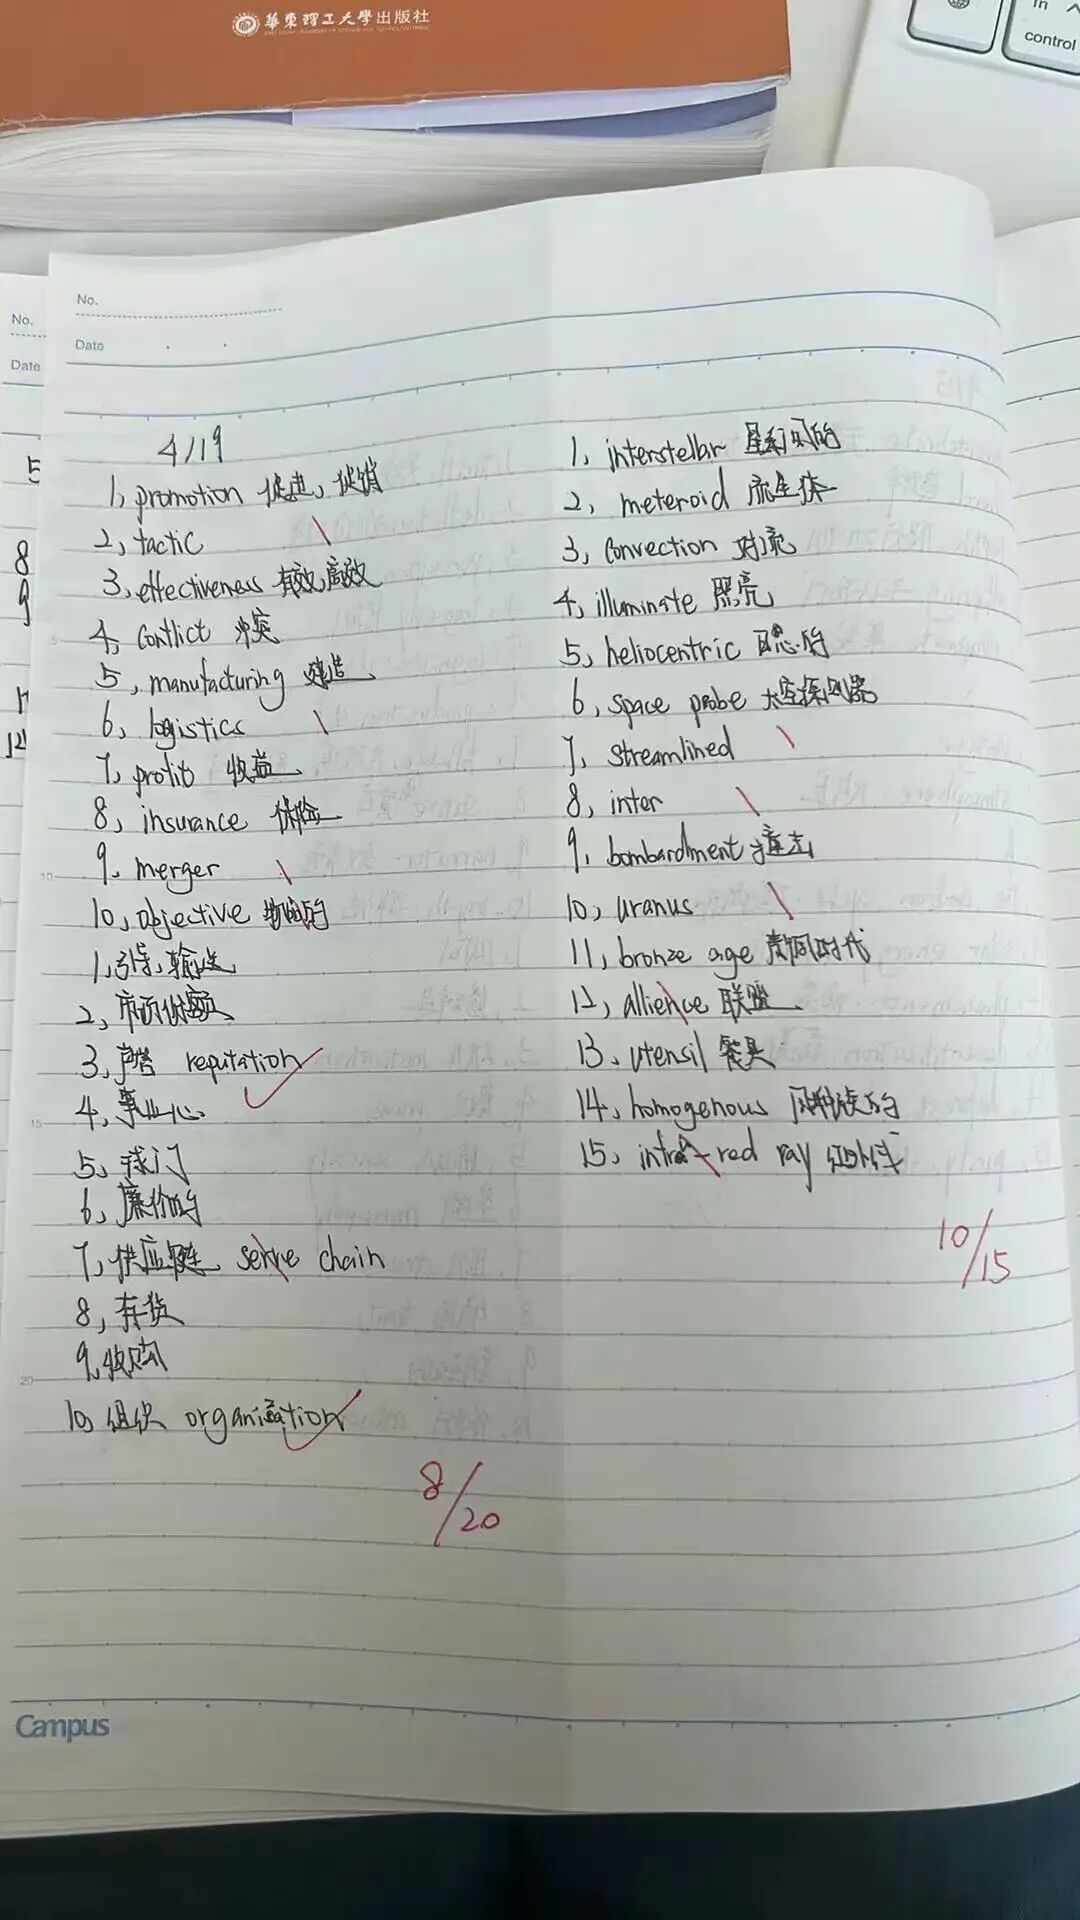 華東理工大學出版社
fn
control
No.
Date
No.
Date
4/19
1, promotion 促进, 促销
2, tactic
3, effectiveness 有效,高效
4, conflict 冲突
5, manufacturing 建造
6, logistics
7, profit 收益
8, insurance 保险
9, merger
10, objective 的
1, 引导, 输送
2, 市场份额
3, 声誉 reputation
4, 事业心
5, 球门
6, 廉价的
7, 供应链 serve chain
8, 存货
9, 收购
10, 组织 organization
8/20
1, interstellar 星际间的
2, meteroid 流星体
3, convection 对流
4, illuminate 照亮
5, heliocentric 日心的
6, space probe 太空探测器
7, streamlined
8, inter
9, bombardment 撞击
10, uranus
11, bronze age 青铜时代
12, allience 联盟
13, utensil 餐具
14, homogenous 同种族的
15, intra-red ray 红外线
10/15
5
8
9
11
12
5
10
15
20
Campus